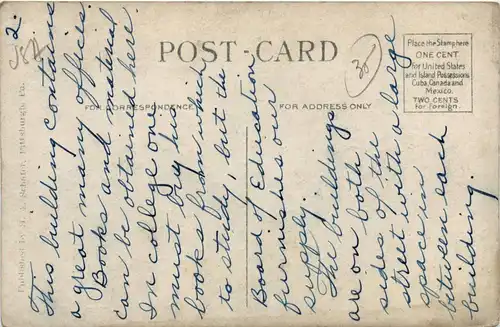 POST-CARD
Place the Stamp here
ONE CENT
for United States
and Island Possessions
Cuba, Canada and
Mexico.
TWO CENTS
for Foreign.
FOR CORRESPONDENCE
FOR ADDRESS ONLY
Published by Schafer, Pittsburgh, Pa.
2.
This building contains
a great many offices.
Books and material
can be obtained here.
In college one
must buy his
books from which
to study, but the
Board of Education
furnishes our
supply.
The buildings
are on both
sides of the
street with a large
space in
between each
building.